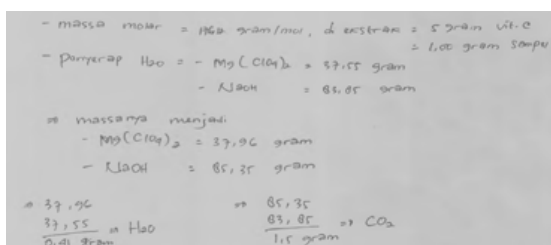 - massa molar = 176 gram/mol, di ekstrak = 5 gram vit-C
= 1,00 gram sampel
- Penyerap H2O = - Mg(ClO4)2 = 37,55 gram
- NaOH = 83,85 gram
⇒ massanya menjadi
- Mg(ClO4)2 = 37,96 gram
- NaOH = 85,35 gram
⇒ 37,96
37,55
0,41 gram
⇒ H2O
⇒ 85,35
83,85
1,5 gram
⇒ CO2